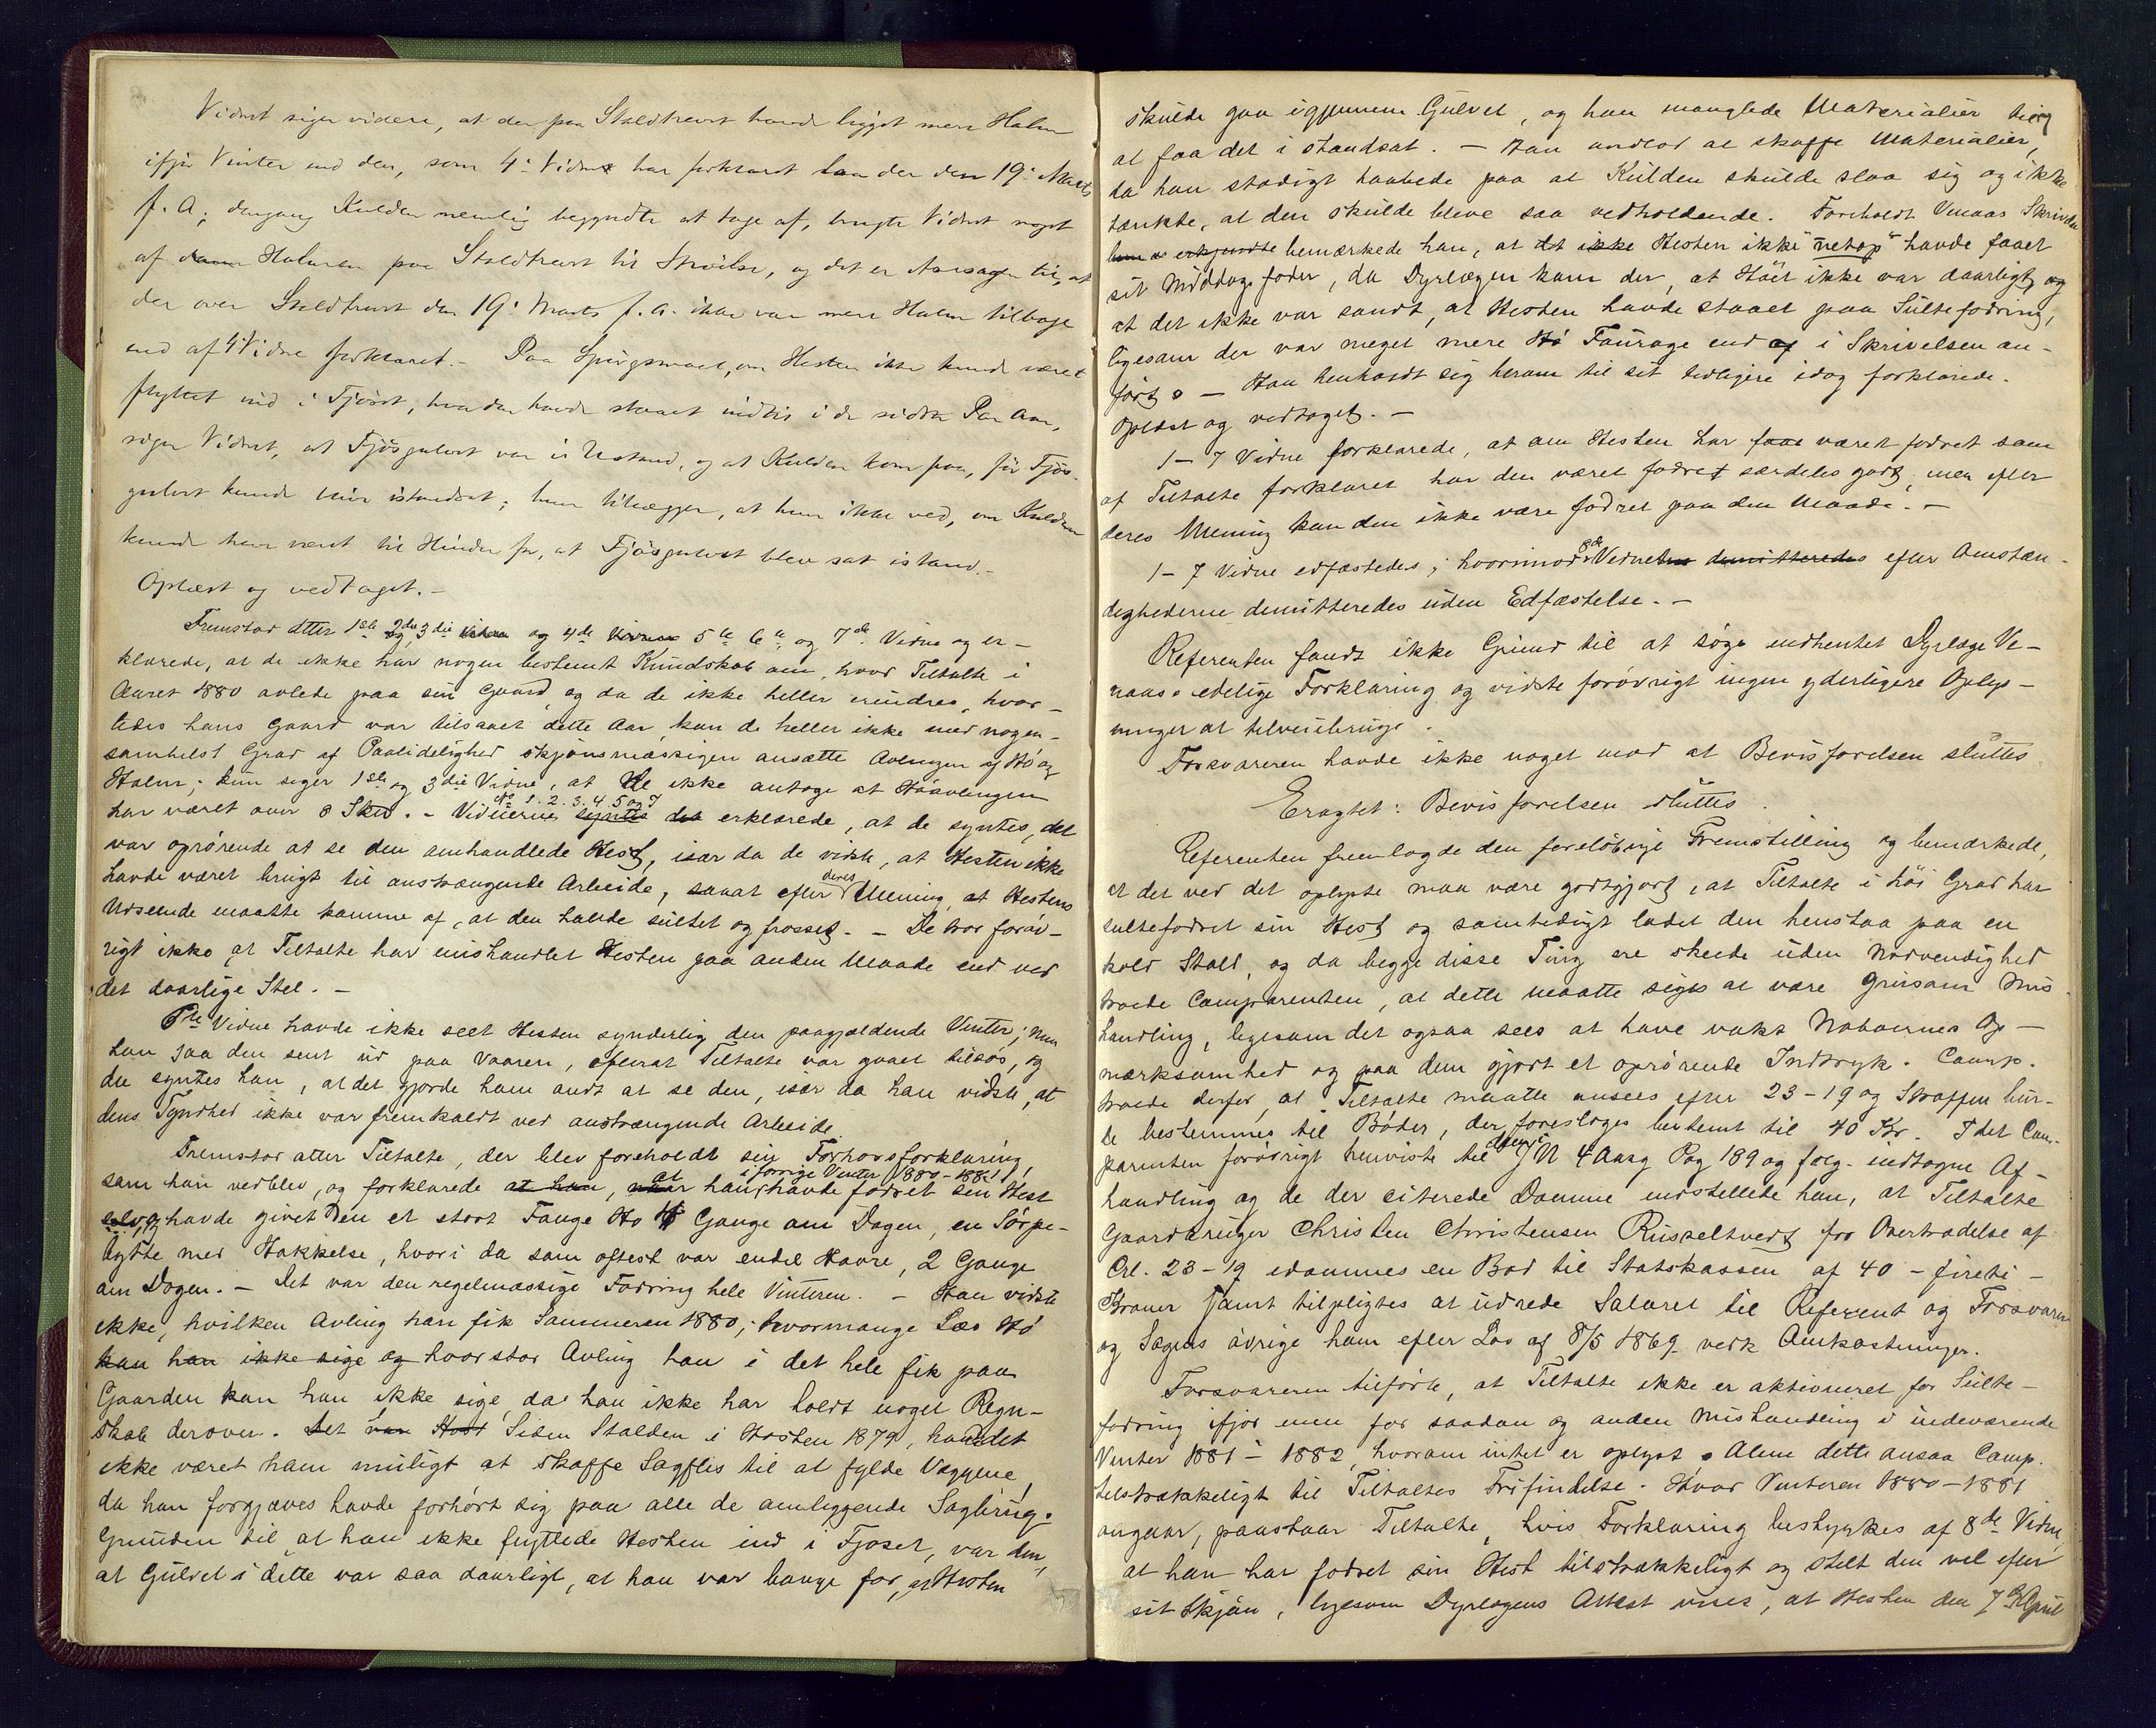 Vidnet siger videre, at der paa Staldtrevet havde ligget mere Halm
ifjor Vinter end den, som 4: Vidne har forklaret laa der den 19: Marts
f. A; dengang Kulden nemlig begyndte at tage af, brugte Vidnet noget
af Halmen paa Staldtrevet til Strøelse, og det er Aarsagen til, at
der over Staldtrevet den 19: Marts f. A. ikke var mere Halm tilbage
end af 4 Vidne forklaret. - Paa Spørgsmaal, om Hesten ikke kunde været
flyttet ind i Fjøset, hvor den havde staaet indtil i de sidste Par Aar,
siger Vidnet, at Fjøsgulvet var i Ustand, og at Kulden kom paa, før Fjøs-
gulvet kunde blive istandsat; hun tilægger, at hun ikke ved, om Kulden
kunde have været til Hinder for, at Fjøsgulvet blev sat istand. -
Oplæst og vedtaget. -
Fremstod atter 1ste 2det 3die og 4de 5te 6te og 7de Vidne og er-
klarede, at de ikke har nogen bestemt Kundskab om, hvad Tiltalte i
Aaret 1880 avlede paa sin Gaard, og da de ikke heller erindrer, hvor-
ledes hans Gaard var tilsaaet dette Aar, kan de heller ikke med nogen-
somhelst Grad af Paalidelighed skjønsmæssigen ansætte Avlingen af Hø og
Halm; kun siger 1ste og 3die Vidne, at de ikke antage at Høavlingen
har været over 8 Skd. - Vidnerne No 1. 2. 3. 4. 5 og 7 syntes det erklærede, at de syntes, det
var oprørende at se den omhandlede Hest, især da de vidste, at Hesten ikke
havde været brugt til anstrængende Arbeide, saaat efter deres Mening at Hestens
Udseende maatte komme af, at den havde sultet og frosset. - De tror forøv-
rigt ikke, at Tiltalte har mishandlet Hesten paa anden Maade end ved
det daarlige Stel. -
6te Vidne havde ikke seet Hesten synderlig den paagjældende Vinter; men
han saa den sent ud paa Vaaren, efterat Tiltalte var gaaet tilsøs, og
da syntes han, at det gjorde ham ondt at se den, især da han vidste, at
dens Tyndhed ikke var fremkaldt ved anstrængende Arbeide.
Fremstod atter Tiltalte, der blev foreholdt sin Forhørsforklaring,
som han vedblev, og forklarede at han, at han i forrige Vinter (1880-1881) havde fodret sin Hest
selv og havde givet den et stort Fange Hø 4 Gange om Dagen, en Sørpe-
bytte med Hakkelse, hvori da som oftest var endel Havre, 2 Gange
om Dagen. - Det var den regelmæssige Fodring hele Vinteren. - Han vidste
ikke, hvilken Avling han fik Sommeren 1880; hvormange Læs Hø
kan han ikke sige og hvor stor Avling han i det hele fik paa
Gaarden kan han ikke sige, da han ikke har holdt noget Regn-
skab derover. Det var Høst Siden Stalden i Høsten 1879, havde det
ikke været ham muligt at skaffe Sagflis til at fylde Væggene,
da han forgjæves havde forhørt sig paa alle de omliggende Sagbrug.
Grunden til, at han ikke flyttede Hesten ind i Fjøset, var den,
at Gulvet i dette var saa daarligt, at han var bange for, at Hesten
skulde gaa igjennem Gulvet, og han manglede Materialier til
at faa det i standsat. - Han undlod at skaffe Materialier,
da han stadigt haabede paa at Kulden skulde slaa sig og ikke
tænkte, at den skulde blive saa vedholdende. Foreholdt Venaas Skrivelse
erkjendte bemærkede han, at det ikke Hesten ikke "netop" havde faaet
sit Middagsfoder, da Dyrlægen kom der, at Høet ikke var daarligt, og
at det ikke var sandt, at Hesten havde staaet paa Sultefodring,
ligesom der var meget mere Hø Fourage end af i Skrivelsen an-
ført. - Han henholdt sig herom til sit tidligere idag forklarede.
Oplæst og vedtaget. -
1-7 Vidne forklarede, at om Hesten har været fodret som
af Tiltalte forklaret har den været fodret særdeles godt, men efter
deres Mening kan den ikke være fodret paa den Maade. -
1-7 Vidne edfæstedes; hvorimod 8de Vidne demitteredes efter Omstæn-
dighederne demitteredes uden Edfæstelse. -
Referenten fandt ikke Grund til at søge indhentet Dyrlæge Ve-
naas edelige Forklaring og vidste forøvrigt ingen yderligere Oplys-
ninger at tilveiebringe.
Forsvareren havde ikke noget mod at Bevisførelsen sluttes
Eragtet: Bevisførelsen sluttes.
Referenten fremlagde den foreløbige Fremstilling og bemærkede,
at det ved det oplyste maa være godtgjort, at Tiltalte i høi Grad har
sultefodret sin Hest og samtidigt ladet den henstaa paa en
kold Stald, og da begge disse Ting ere skeede uden Nødvendighed
troede Comparenten, at dette maatte siges at være grusom Mis-
handling, ligesom det ogsaa sees at have vakt Naboernes Op-
mærksomhed og paa dem gjort et oprørende Indtryk. Comp.
troede derfor, at Tiltalte maatte ansees efter 23-19 og Straffen bur-
de bestemmes til Bøder, der foresloges bestemt til 40 Kr. Idet Com-
parenten forøvrigt henviste til den i JN 4 Aarg Pag 189 og følg. indtagne Af-
handling og de der siterede Domme indstillede han, at Tiltalte
Gaardbruger Christen Christensen Russeltvedt for Overtrædelse af
Crl. 23-19 idømmes en Bod til Statskassen af 40 - fireti -
Kroner samt tilpligtes at udrede Salæret til Referent og Forsvarer
og Sagens øvrige ham efter Lov af 8/5 1869 vedk Omkostninger.
Forsvareren tilførte, at Tiltalte ikke er aktioneret for Sulte-
fodring ifjor men for saadan og anden Mishandling i indeværende
Vinter 1881-1882, hvorom intet er oplyst. Alene dette ansaa Comp.
tilstrækkeligt til Tiltaltes Frifindelse. Hvad Vinteren 1880-1881
angaar, paastaar Tiltalte, hvis Forklaring bestyrkes af 8de Vidne,
at han har fodret sin Hest tilstrækkeligt og stelt den vel efter
sit Skjøn, ligesom Dyrlægens Attest viser, at Hesten den 7de April